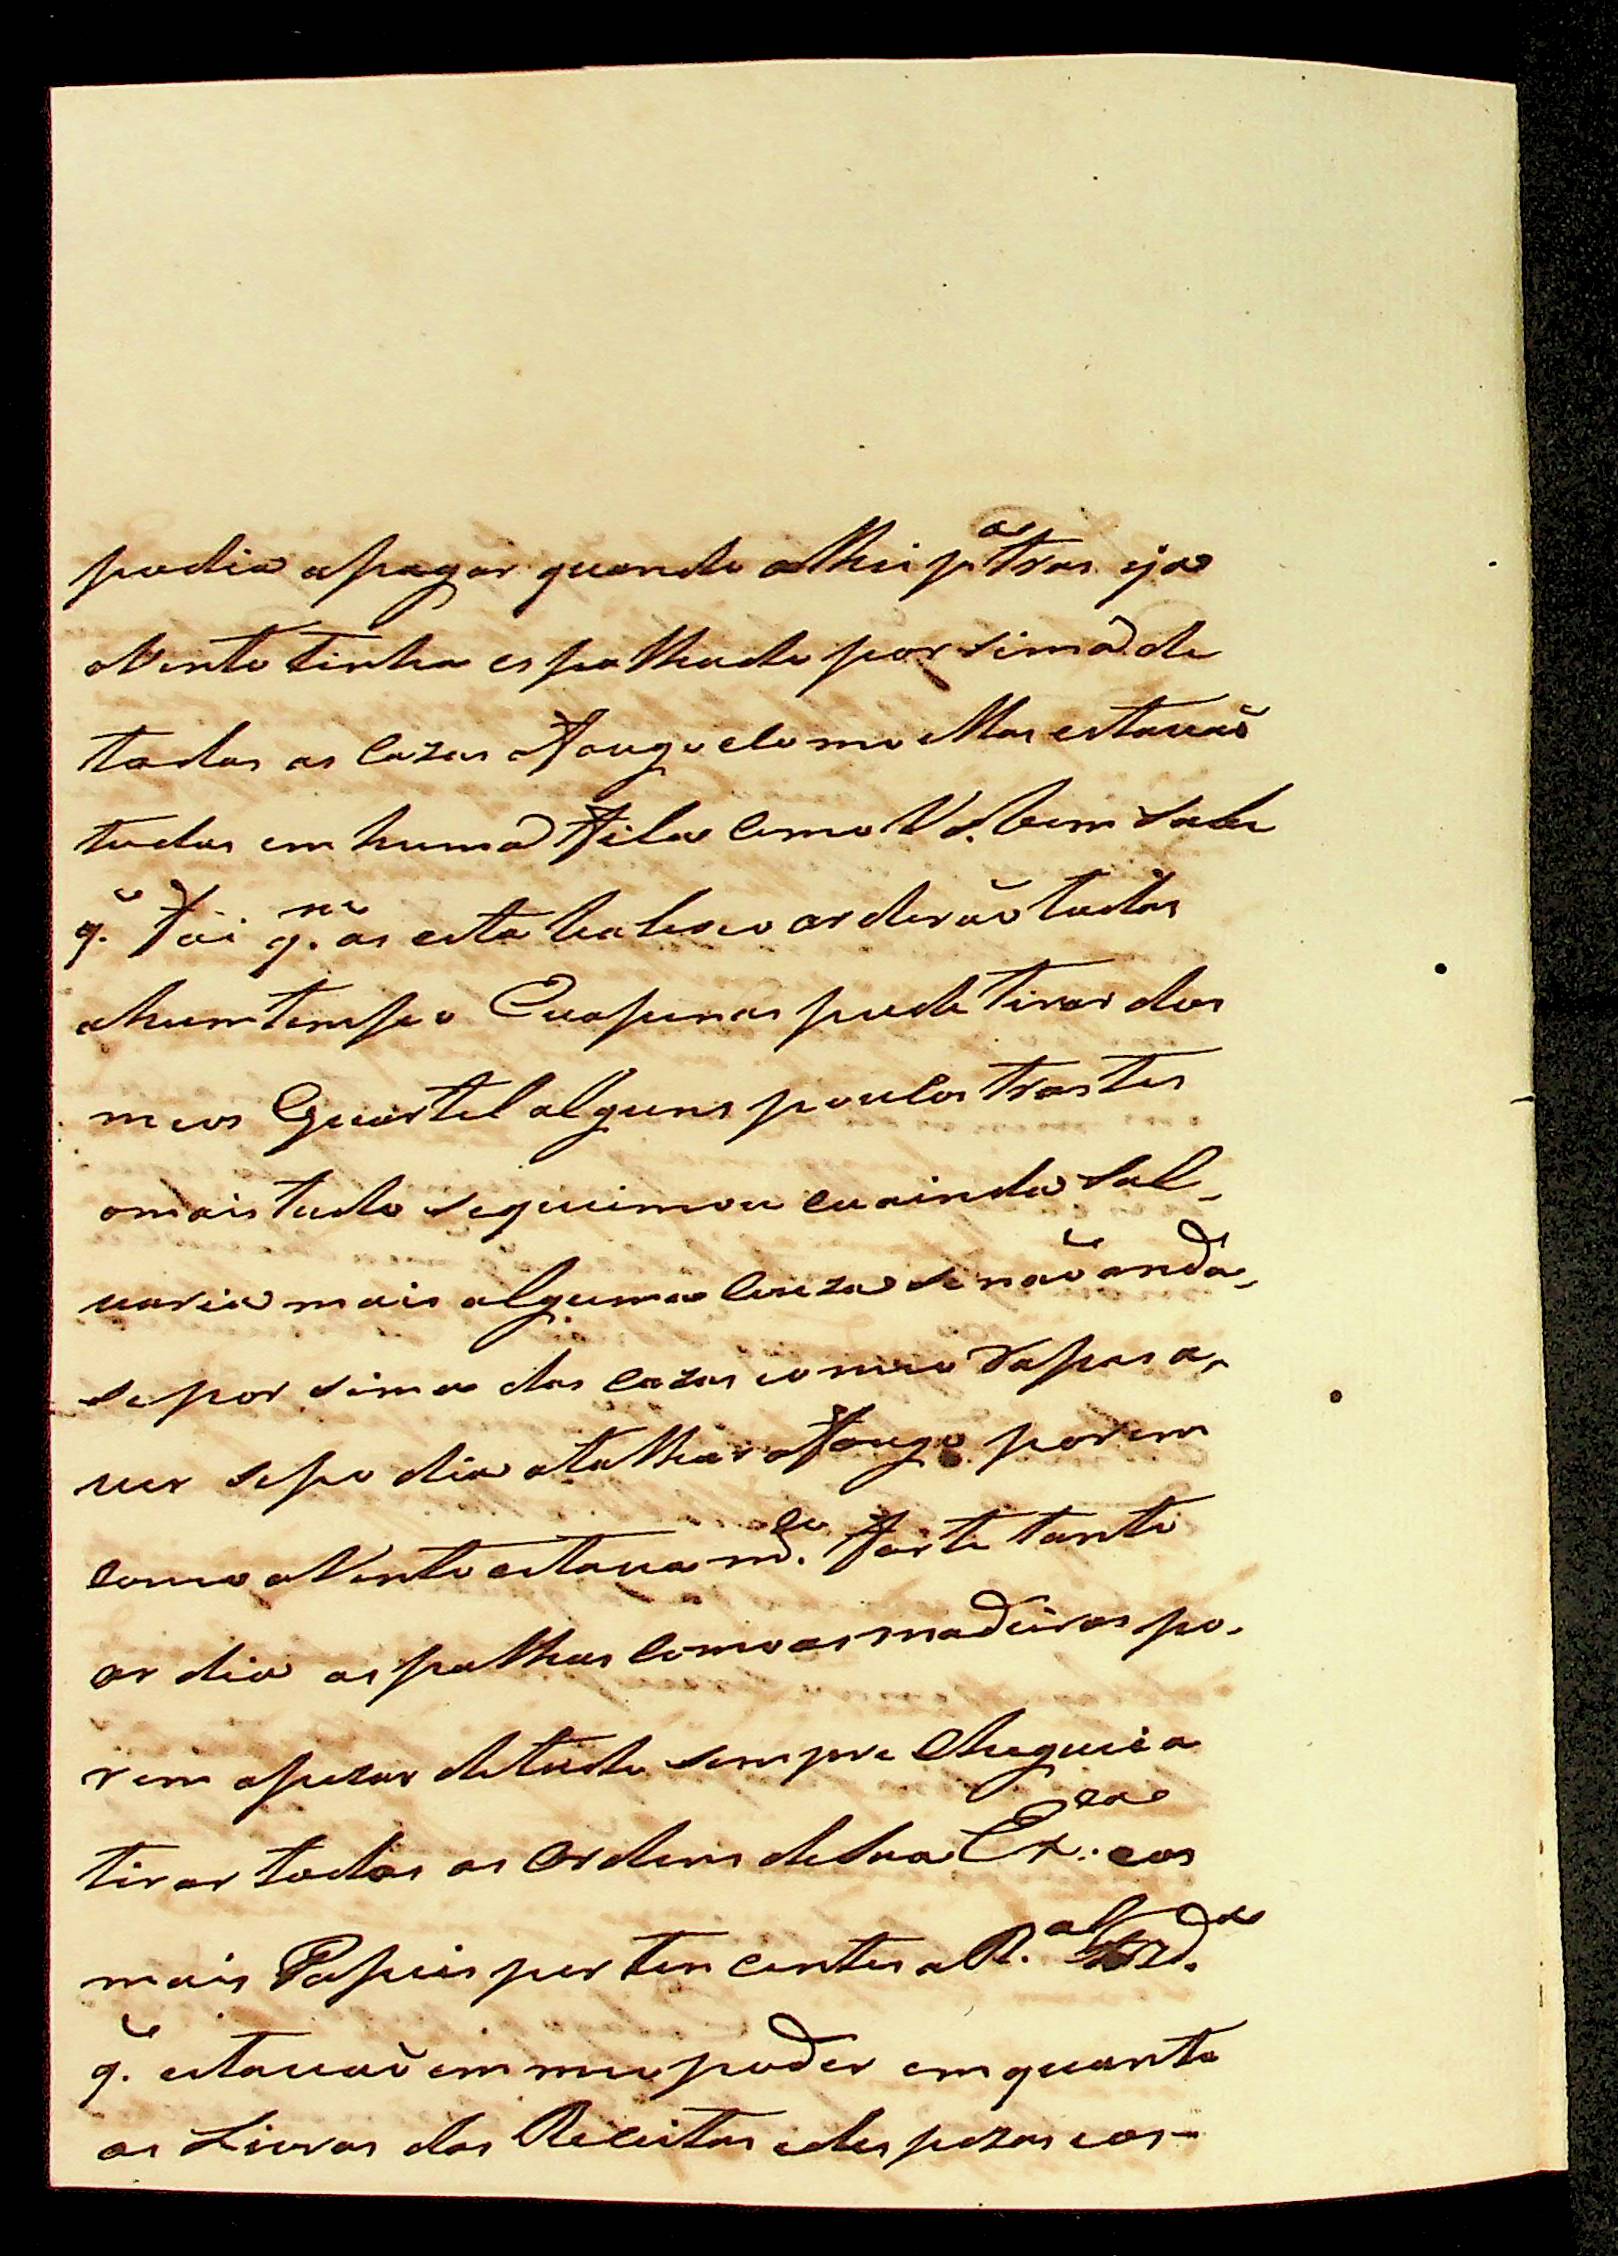 podia apagar quando olhei p.ª tras eja
oVento tinha espalhado por sima de
todas as Cazas oFougo Como ellas estavaõ
todas em huma Fila Como VS. bem Sabe
q̃. Foi q.m as estabaleseo arderaõ todas
ahum tempo Euapenas pude tirar dos
meos Quartel alguns poucos trastes
omais tudo sequeimou eu ainda Sal-
varia mais alguma Couza se naõ anda-
se por sima das Cazas como Rapas a,
ver sepodia atalhar oFougo porem
como oVento estava m.to Forte tanto
ardia as palhas Como as madeiras po-
rem apezar detudo sempre Cheguei a
tirar todas as Ordens desua Ex.za eos
mais Papeis pertencentes a R.al Fazd.a
q̃. estavaõ em meu poder em quanto
os Livros das Receitas edespezas eos-